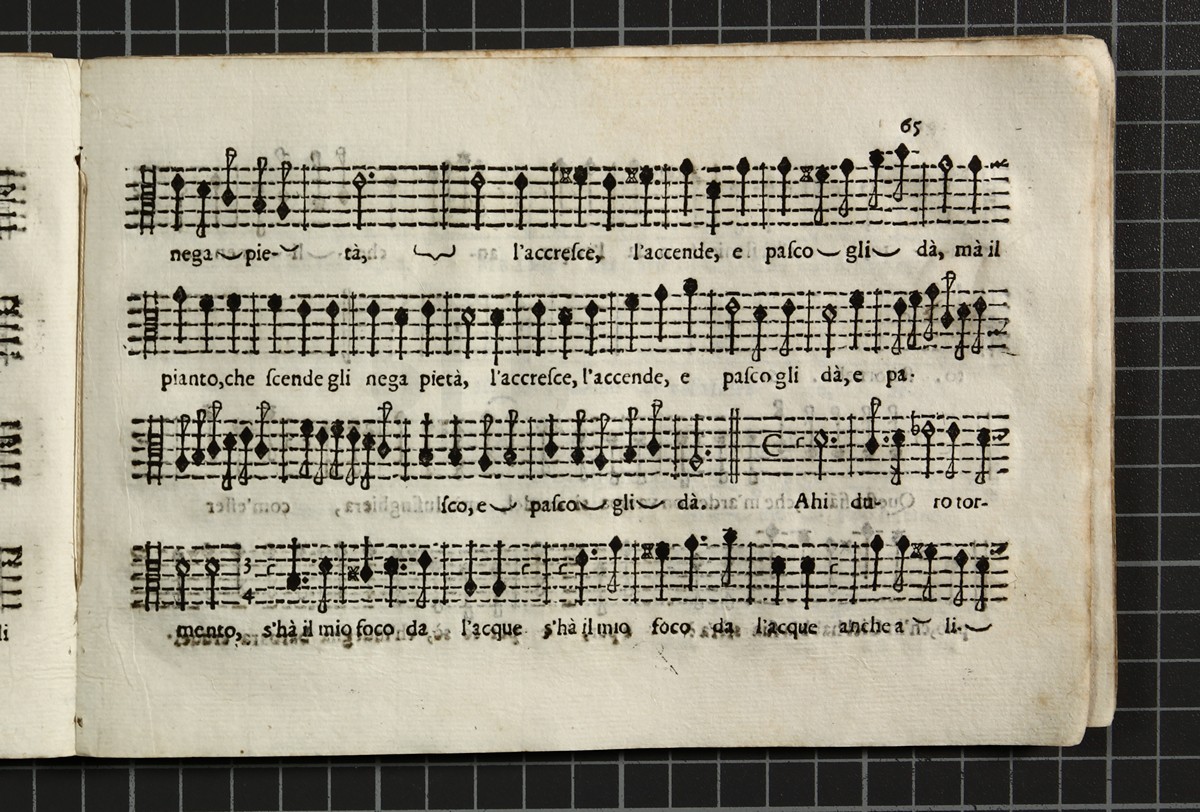 65
nega pie- tà, l'accreſce, l'accende, e paſco gli dà, mà il
pianto, che ſcende gli nega pietà, l'accreſce, l'accende, e paſco gli dà, e pa-
ſco, e paſco gli dà. Ahi du- ro tor-
3
4
mento, s'hà il mio foco da l'acque s'hà il mio foco da l'acque anche a li-